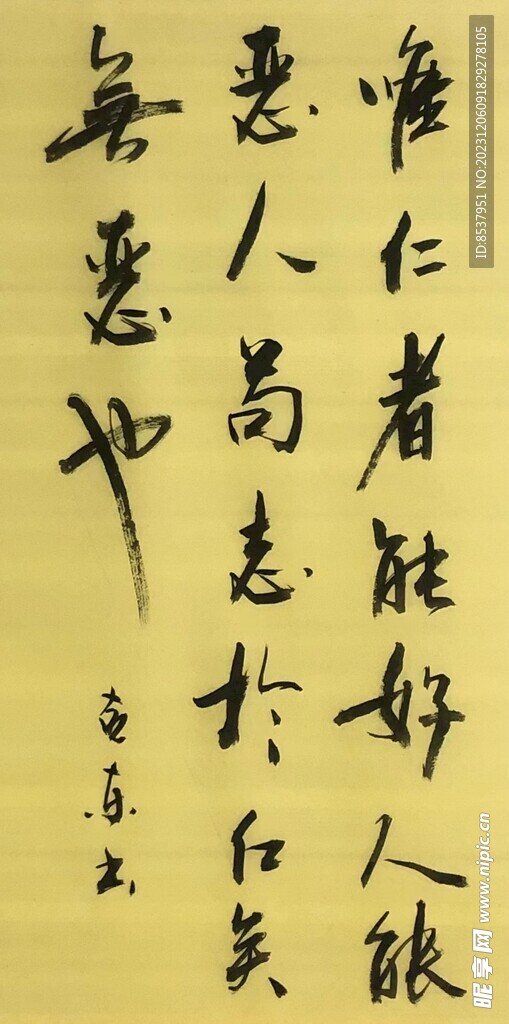 唯仁者能好人能
惡人苟志於仁矣
無惡也
东书
ID:8537951 NO:20231206091829278105
昵享网 www.nipic.cn